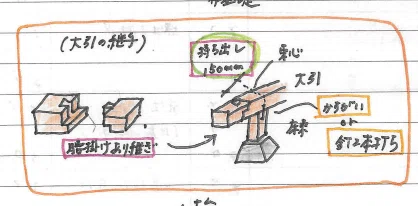 (大引の継手)
持ち出し
150mm
束心
大引
かすがい
or
釘2本打ち
床束
腰掛けあり継ぎ